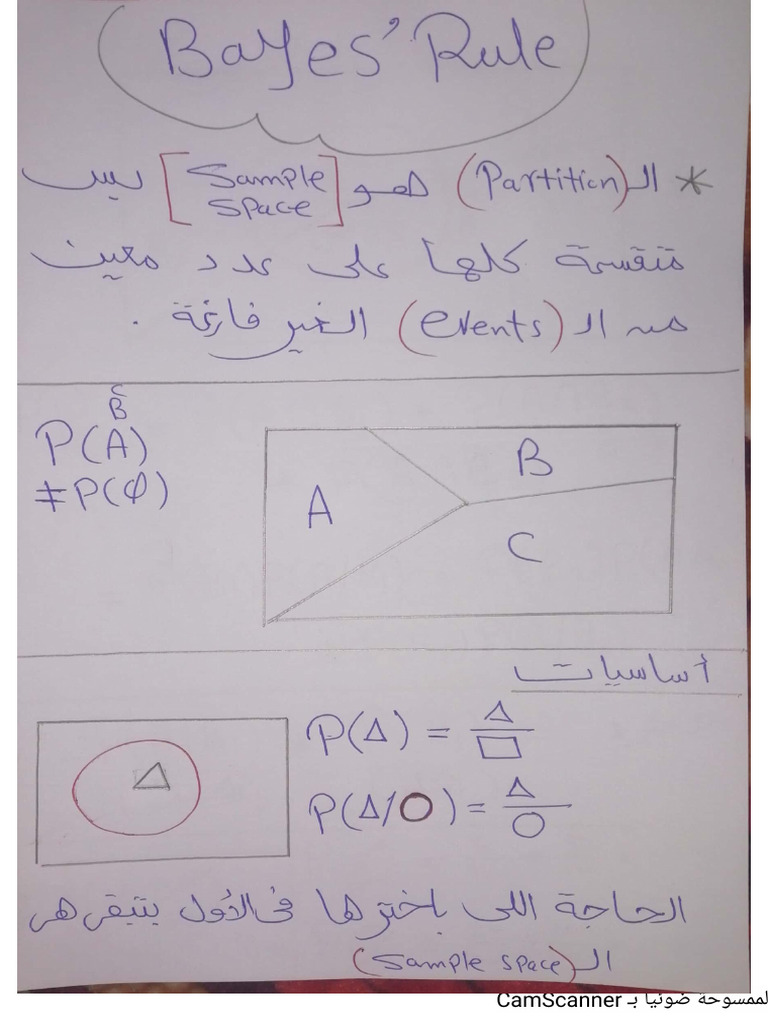 Bayes' Rule
* الـ (Partition) هو [Sample space] بس
متقسمة كلها على عدد معين
من الـ (events) الغير فارغة .
C
B
P(A)
≠P(φ)
A
B
C
أساسيات
P(Δ) = Δ/□
P(Δ/O) = Δ/O
Δ
الحاجة اللى باخترها فى الأول بتبقى هى
الـ (Sample space)
الممسوحة ضوئيا بـ CamScanner